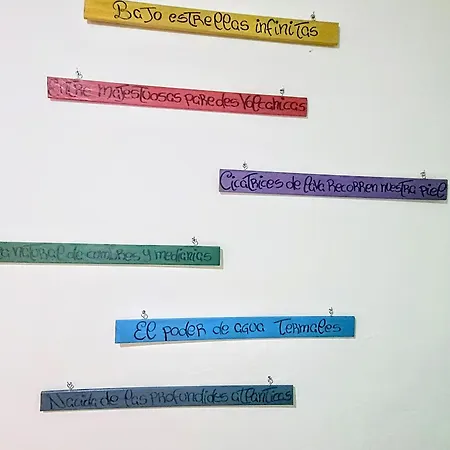 Bajo estrellas infinitas
Entre majestuosas paredes Volcanicas
Cicatrices de lava recorren nuestra piel
natural de cumbres y medianias
El poder de agua Termales
Nacida de las profundides atlanticas